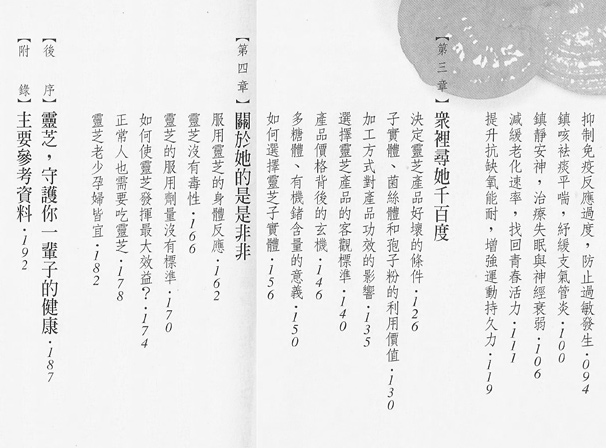 抑制免疫反應過度，防止過敏發生・094
鎮咳祛痰平喘，紓緩支氣管炎・100
鎮靜安神，治療失眠與神經衰弱・106
減緩老化速率，找回青春活力・111
提升抗缺氧能耐，增強運動持久力・119
【第三章】眾裡尋她千百度
決定靈芝產品好壞的條件・126
子實體、菌絲體和孢子粉的利用價值・130
加工方式對產品功效的影響・135
選擇靈芝產品的客觀標準・140
產品價格背後的玄機・146
多糖體、有機鍺含量的意義・150
如何選擇靈芝子實體・156
【第四章】關於她的是是非非
服用靈芝的身體反應・162
靈芝沒有毒性・166
靈芝的服用劑量沒有標準・170
如何使靈芝發揮最大效益？・174
正常人也需要吃靈芝・178
靈芝老少孕婦皆宜・182
【後 序】靈芝，守護你一輩子的健康・187
【附 錄】主要參考資料・192